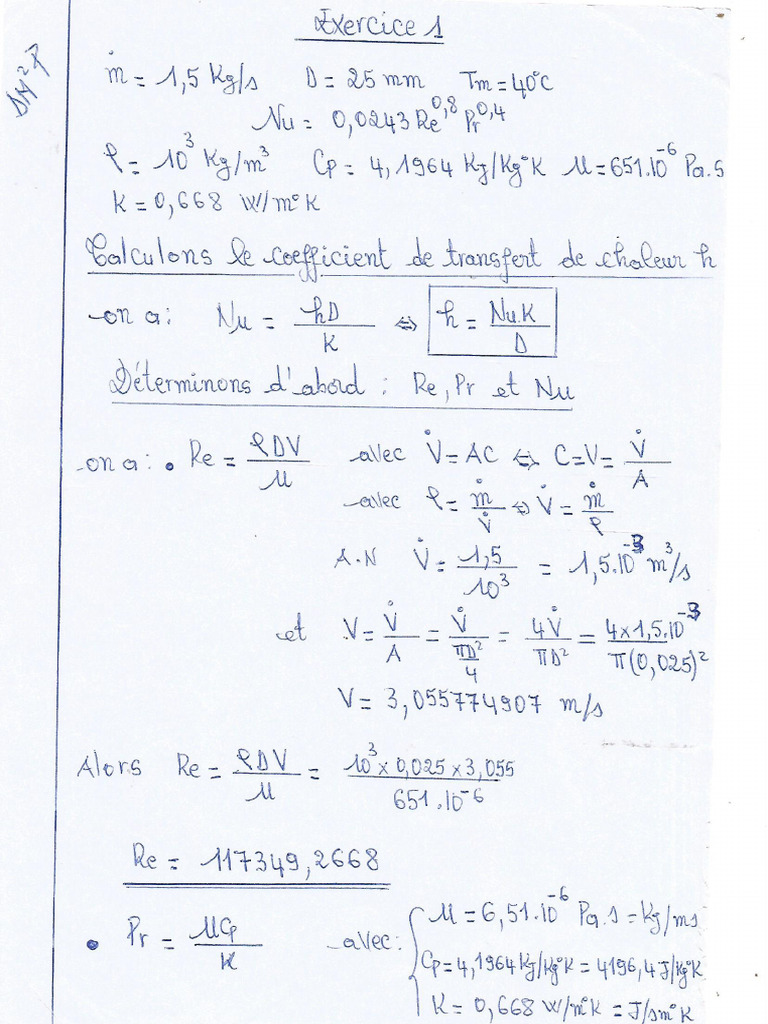 Exercice 1
DH²P
ṁ = 1,5 Kg/s D = 25 mm Tm = 40°C
Nu = 0,0243 Re^0,8 Pr^0,4
ρ = 10³ Kg/m³ Cp = 4,1964 KJ/Kg°K μ = 651.10⁻⁶ Pa.s
K = 0,668 W/m°K
Calculons le coefficient de transfert de chaleur h
on a: Nu = hD/K ⇔ h = Nu.K/D
Déterminons d'abord : Re, Pr et Nu
on a: • Re = ρDV/μ avec V̇ = AC ⇔ C=V= V̇/A
avec ρ = ṁ/V̇ ⇔ V̇ = ṁ/ρ
A.N V̇ = 1,5/10³ = 1,5.10⁻³ m³/s
et V = V̇/A = V̇/(πD²/4) = 4V̇/πD² = 4x1,5.10⁻³/π(0,025)²
V = 3,055774907 m/s
Alors Re = ρDV/μ = 10³x0,025x3,055/651.10⁻⁶
Re = 117349,2668
• Pr = μCp/K avec: { μ = 6,51.10⁻⁶ Pa.s = Kg/ms
Cp = 4,1964 KJ/Kg°K = 4196,4 J/Kg°K
K = 0,668 W/m°K = J/sm°K